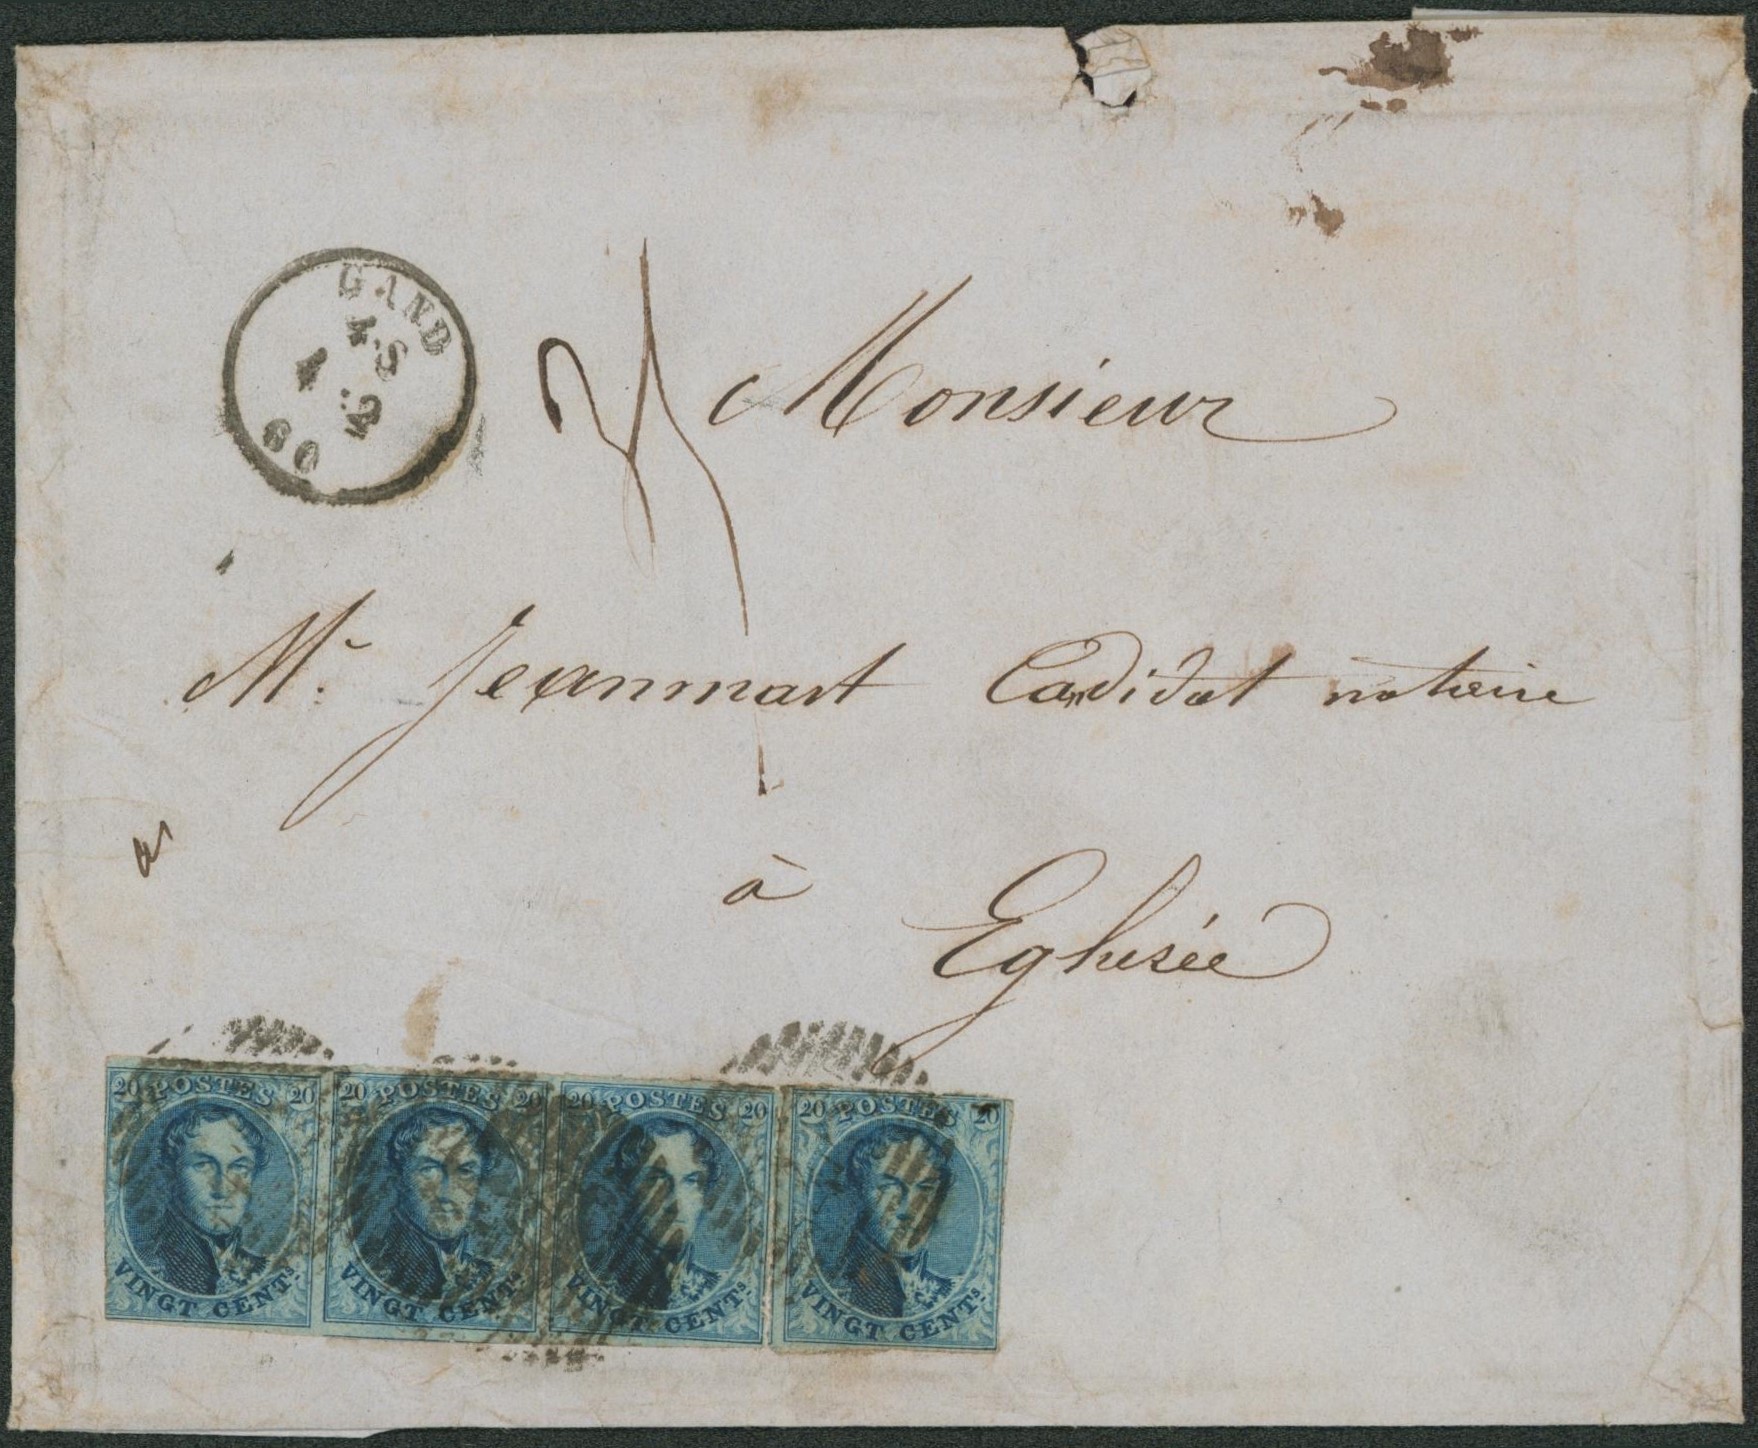 GAND
4-S
4
60
Monsieur
Mr. Jeanmart Candidat notaire
à Eghesée
20 POSTES 20
VINGT CENTS.
20 POSTES 20
VINGT CENTS.
20 POSTES 20
VINGT CENTS.
20 POSTES 20
VINGT CENTS.